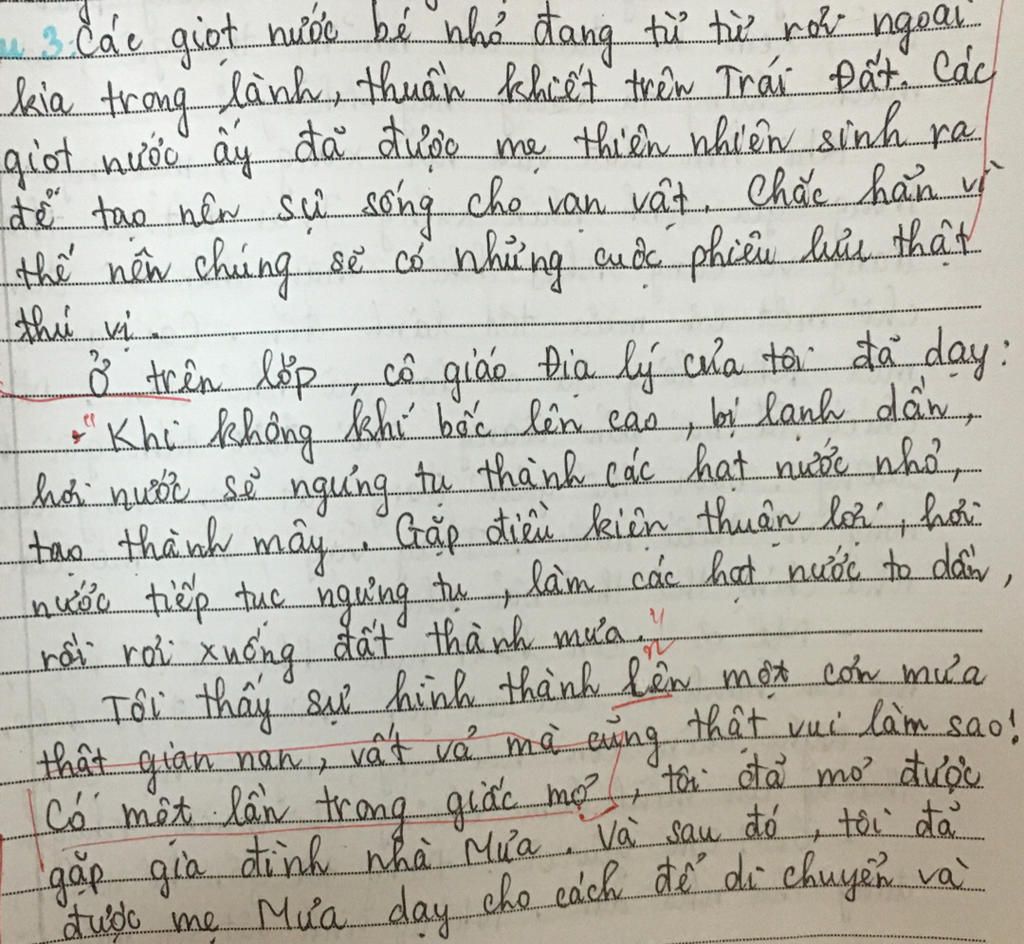 3. Các giọt nước bé nhỏ đang từ từ rơi ngoài
kia trong lành, thuần khiết trên Trái Đất. Các
giọt nước ấy đã được mẹ thiên nhiên sinh ra
để tạo nên sự sống cho vạn vật. Chắc hẳn vì
thế nên chúng sẽ có những cuộc phiêu lưu thật
thú vị.
Ở trên lớp, cô giáo Địa lý của tôi đã dạy:
"Khi không khí bốc lên cao, bị lạnh dần,
hơi nước sẽ ngưng tụ thành các hạt nước nhỏ,
tạo thành mây. Gặp điều kiện thuận lợi, hơi
nước tiếp tục ngưng tụ, làm các hạt nước to dần,
rồi rơi xuống đất thành mưa."
n
Tôi thấy sự hình thành lên một cơn mưa
thật gian nan, vất vả mà cũng thật vui làm sao!
Có một lần trong giấc mơ, tôi đã mơ được
gặp gia đình nhà Mưa. Và sau đó, tôi đã
được mẹ Mưa dạy cho cách để di chuyển và